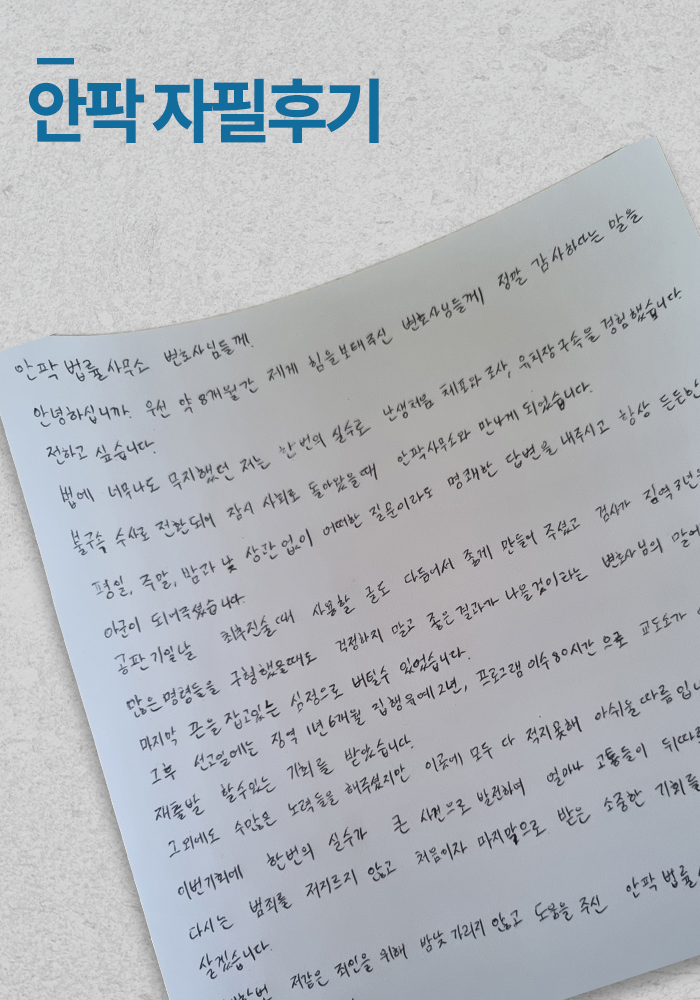 안팍 자필후기
안팍 법률사무소 변호사님들께.
안녕하십니까. 우선 약 8개월간 제게 힘을보태주신 변호사님들께 정말 감사하다는 말을
전하고 싶습니다.
법에 너무나도 무지했던 저는 한번의 실수로 난생처음 체포와 조사, 유치장구속을 경험했습니다
불구속 수사로 전환되어 잠시 사회로 돌아왔을때 안팍사무소와 만나게 되었습니다.
평일, 주말, 밤과 낮 상관없이 어떠한 질문이라도 명쾌한 답변을 내주시고 항상 든든한
아군이 되어주셨습니다.
공판기일날 최후진술때 사용할 글도 다듬어서 좋게 만들어 주셨고 검사가 징역3년
많은 명령들을 구형했을때도 걱정하지 말고 좋은결과가 나올것이라는 변호사님의 말에
마지막 끈을 잡고있는 심정으로 버틸수 있었습니다.
그후 선고일에는 징역 1년6개월 집행유예2년, 프로그램이수80시간 으로 교도소가
재출발 할수있는 기회를 받았습니다.
그외에도 수많은 노력들을 해주셨지만 이곳에 모두 다 적지못해 아쉬울따름입니
이번기회에 한번의 실수가 큰 사건으로 발전하며 얼마나 고통들이 뒤따르
다시는 범죄를 저지르지 않고 처음이자 마지막으로 받은 소중한 기회를
살겠습니다.
저같은 죄인을 위해 밤낮가리지 않고 도움을 주신 안팍 법률